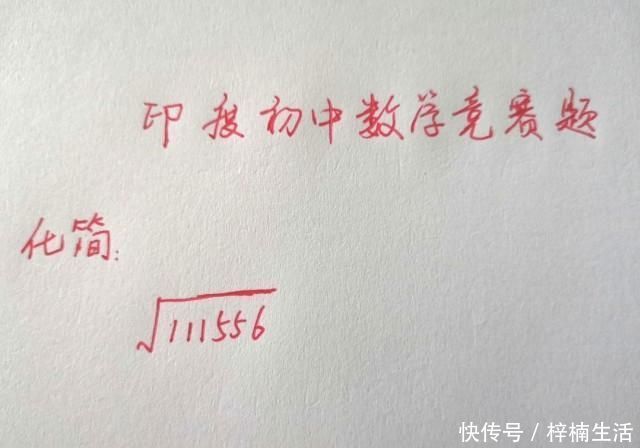 印度初中数学竞赛题
化简:
√111556
快传号／梓楠生活